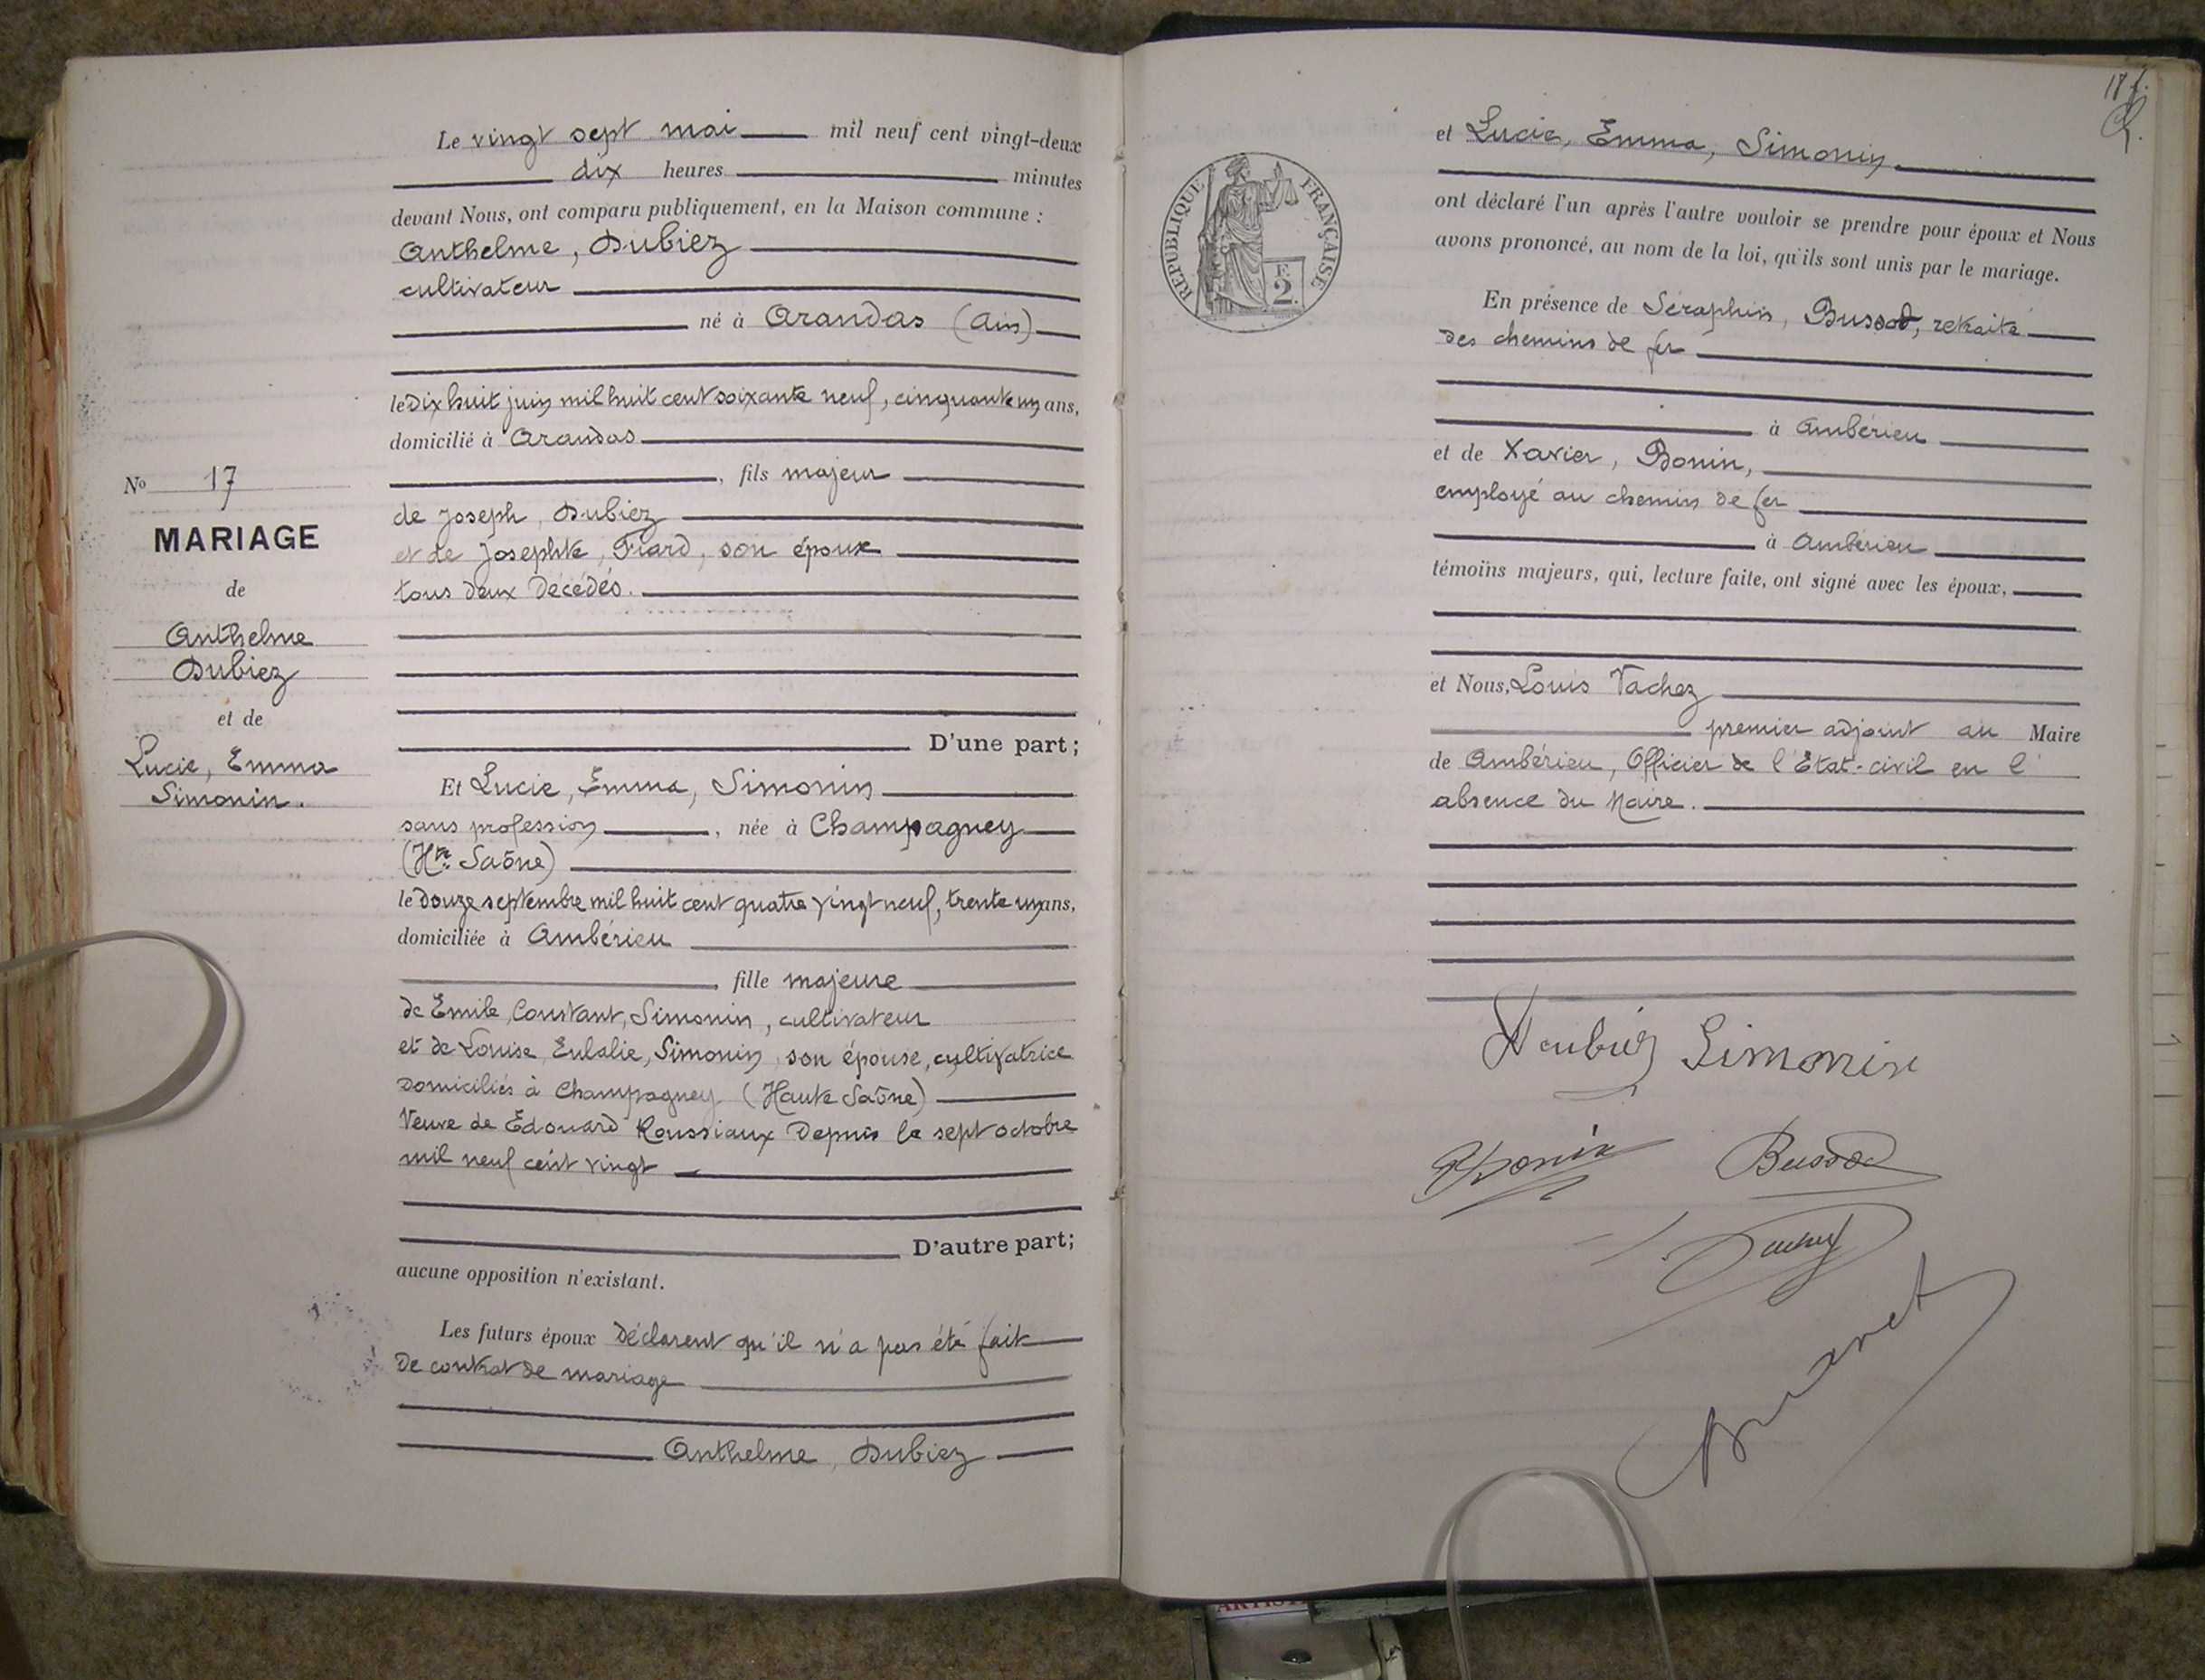 Le vingt sept mai mil neuf cent vingt-deux
dix heures minutes
devant Nous, ont comparu publiquement, en la Maison commune :
Anthelme, Dubiez
cultivateur
né à Arandas (Ain)
le Dix huit juin mil huit cent soixante neuf, cinquante un ans,
domicilié à Arandas
, fils majeur
de Joseph, Dubiez
et de Josephte, Fiard, son épouse
tous deux Décédés.
No 17
MARIAGE
de
Anthelme
Dubiez
et de
Lucie, Emma
Simonin.
D'une part;
Et Lucie, Emma, Simonin
sans profession, née à Champagney
(Hte Saône)
le douze septembre mil huit cent quatre vingt neuf, trente un ans,
domiciliée à Ambérieu
, fille majeure
de Emile, Constant, Simonin, cultivateur
et de Louise, Eulalie, Simonin, son épouse, cultivatrice
domiciliés à Champagney (Haute Saône)
Veuve de Edouard Roussiaux Depuis le sept octobre
mil neuf cent vingt
D'autre part;
aucune opposition n'existant.
Les futurs époux Déclarent qu'il n'a pas été fait
De contrat de mariage
Anthelme, Dubiez
et Lucie, Emma, Simonin.
RÉPUBLIQUE FRANÇAISE
F.
2.
ont déclaré l'un après l'autre vouloir se prendre pour époux et Nous
avons prononcé, au nom de la loi, qu'ils sont unis par le mariage.
En présence de Séraphin, Bussod, retraité
des chemins de fer
à Ambérieu
et de Xavier, Bonin,
employé au chemin de fer
à Ambérieu
témoins majeurs, qui, lecture faite, ont signé avec les époux,
et Nous, Louis Vachez
premier adjoint au Maire
de Ambérieu, Officier de l'État-civil en l'
absence du Maire.
Dubiez Simonin
Bonin Bussod